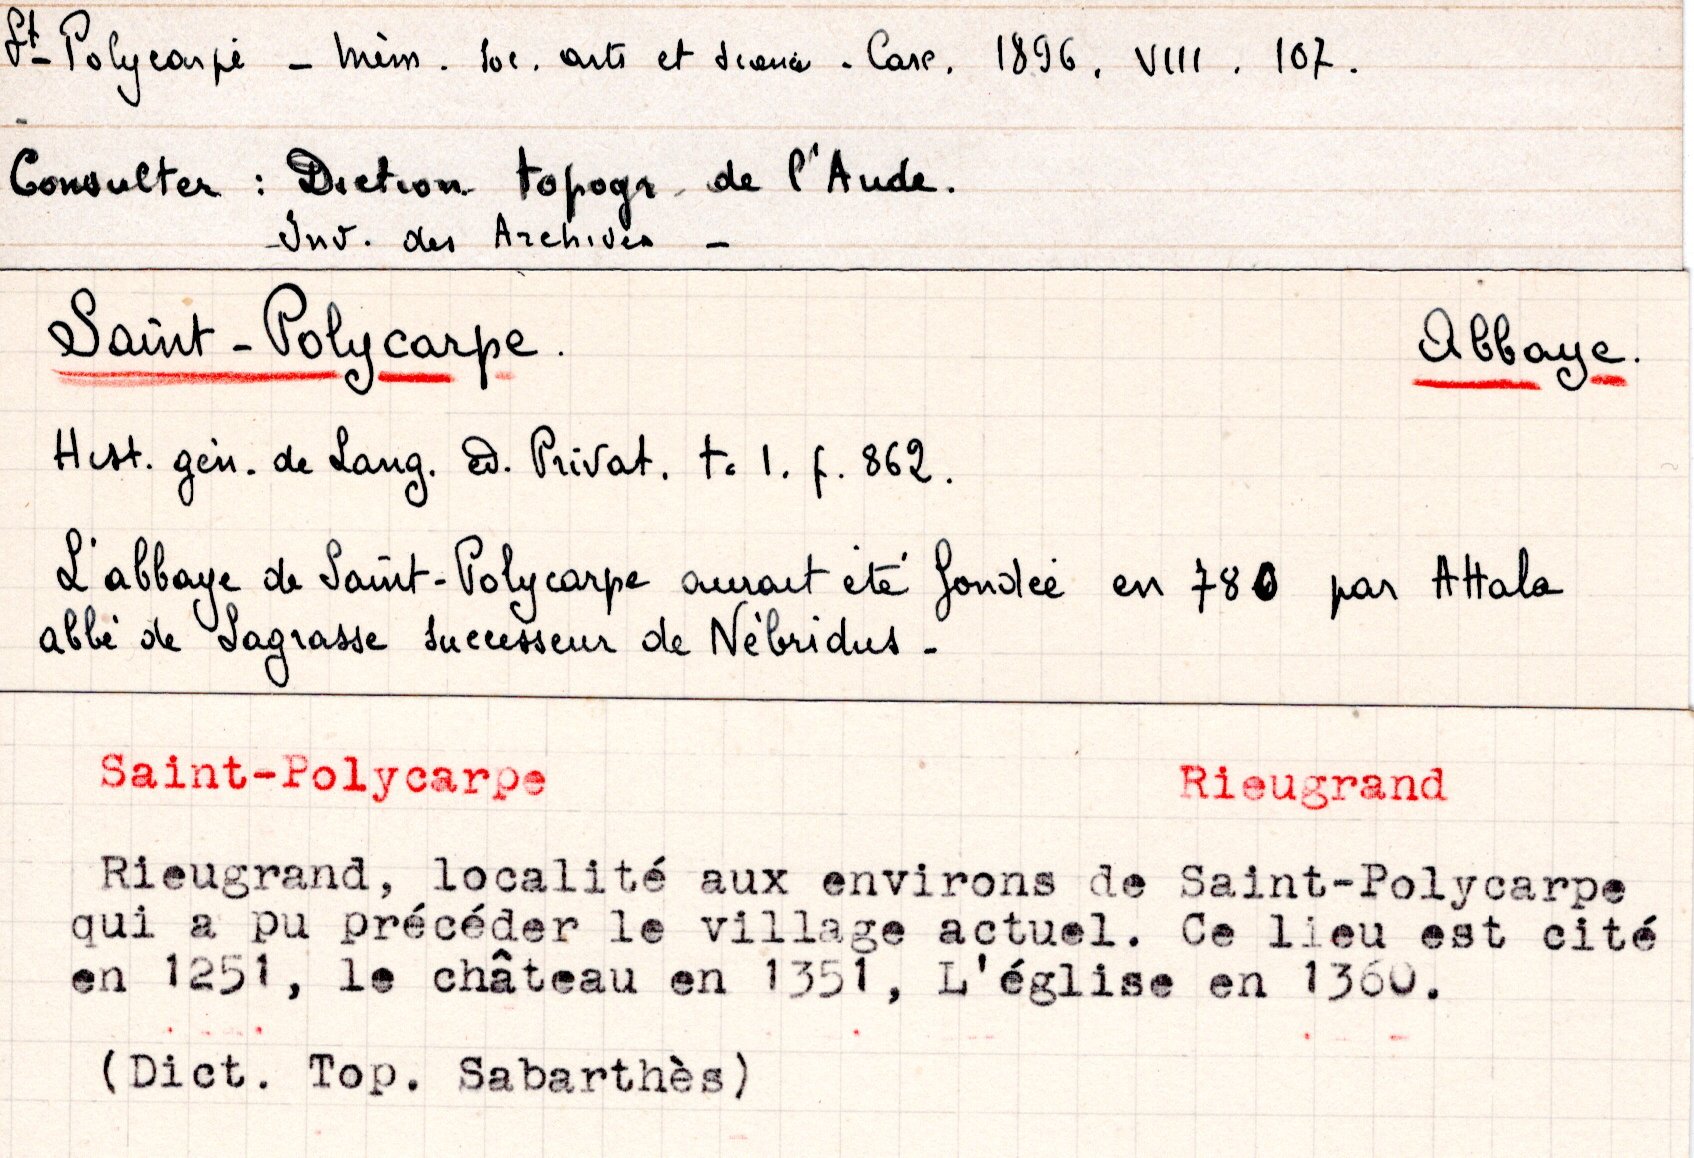 St-Polycarpe - Mém. Soc. arts et scienc. Carc. 1896. VIII. 107.
Consulter : Diction topogr. de l'Aude.
Inv. des Archives -
Saint-Polycarpe. Abbaye.
Hist. gén. de Lang. ed. Privat. t. 1. p. 862.
L'abbaye de Saint-Polycarpe aurait été fondée en 780 par Attala
abbé de Lagrasse successeur de Nébridus -
Saint-Polycarpe Rieugrand
Rieugrand, localité aux environs de Saint-Polycarpe
qui a pu précéder le village actuel. Ce lieu est cité
en 1251, le château en 1351, L'église en 1360.
(Dict. Top. Sabarthès)